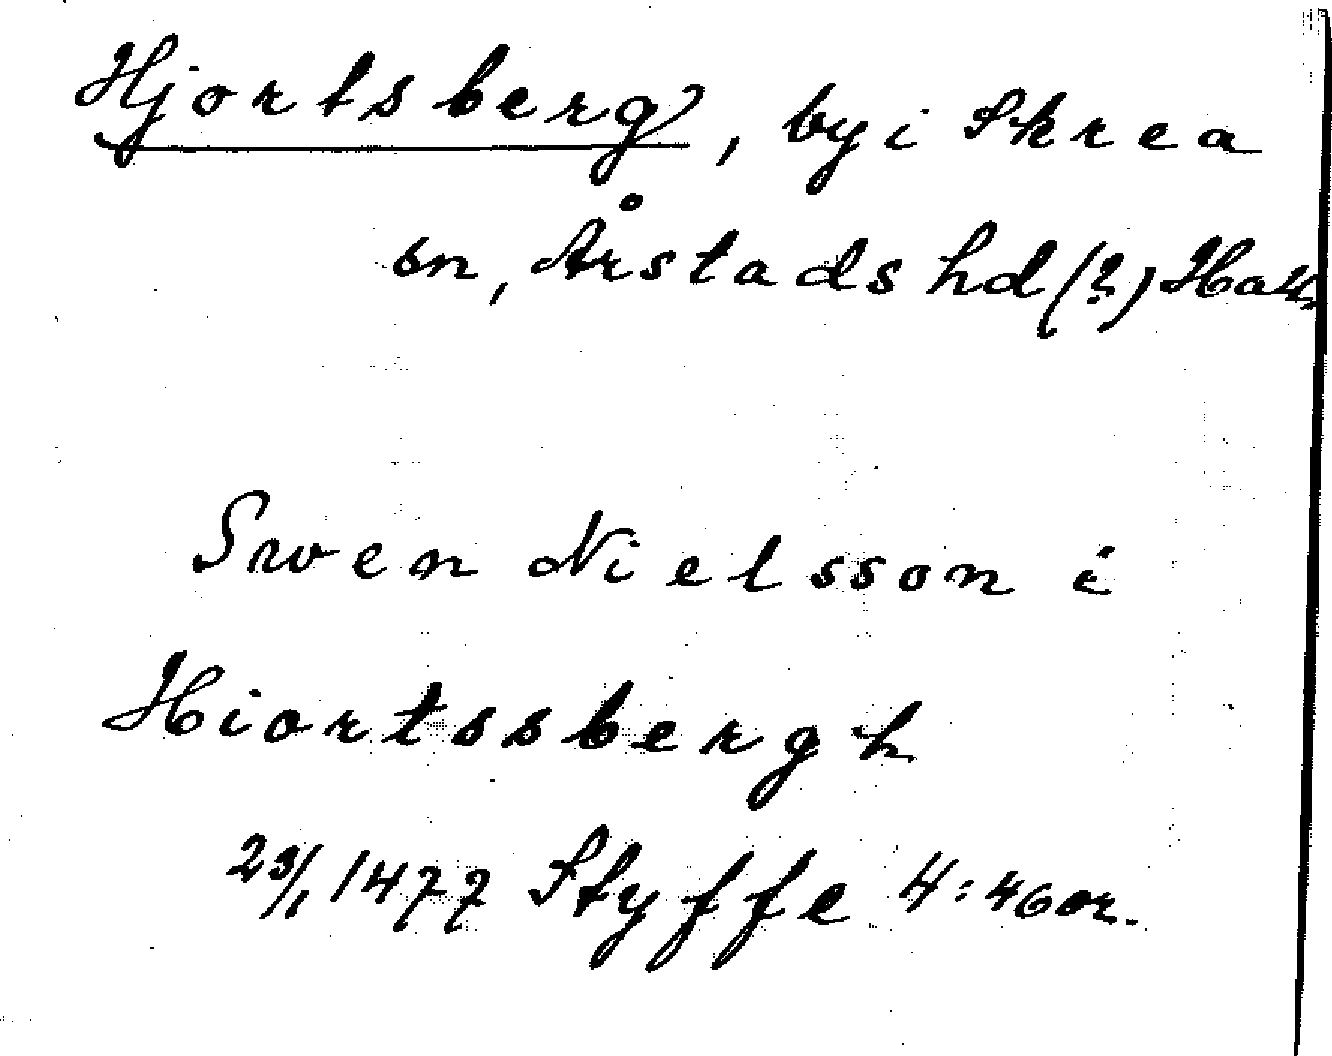 Hjortsberg, by i Skrea
sn, Årstads hd (?) Hall.
Swen Nielsson i
Hiortssbergh
23/1 1477 Styffe 4: 46 or.